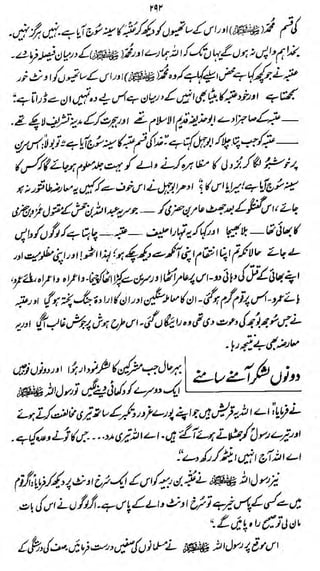 ۲۹۲
کی قسم محمد (ﷺ) اور اس کے ساتھیوں کو دیکھ کر عتبہ کا سینہ سوج آیا ہے۔ نہیں ہرگز نہیں۔
بخدا ہم واپس نہ ہوں گے یہاں تک کہ اللہ ہمارے اور محمد (ﷺ) کے درمیان فیصلہ فرما دے۔
عتبہ نے جو کچھ کہا ہے محض اس لیے کہا ہے کہ وہ محمد (ﷺ) اور اس کے ساتھیوں کو اونٹ خور
سمجھتا ہے اور خود عتبہ کا بیٹا بھی انہیں کے درمیان ہے اس لیے وہ تمہیں ان سے ڈراتا ہے"
عتبہ کے صاحبزادے ابو حذیفہ قدیم الاسلام تھے اور ہجرت کر کے مدینہ تشریف لا چکے تھے۔
عتبہ کو جب پتا چلا کہ ابوجہل کہتا ہے "خدا کی قسم عتبہ کا سینہ سوج آیا ہے" تو بولا: "اس سرین
پر خوشبو لگا کر بزدلی کا مظاہرہ کرنے والے کو بہت جلد معلوم ہو جائے گا کہ کس کا
سینہ سوج آیا ہے، میرا یا اس کا؟" ادھر ابوجہل نے اس خوف سے کہ کہیں یہ معارضہ طاقتور نہ ہو
جائے، اس گفتگو کے بعد جھٹ عامر بن حضرمی کو — جو سریہ عبداللہ بن جحش کے مقتول عمرو بن حضرمی
کا بھائی تھا — بلا بھیجا اور کہا کہ یہ تمہارا حلیف — عتبہ — چاہتا ہے کہ لوگوں کو واپس
لے جائے حالانکہ تم اپنا انتقام اپنی آنکھ سے دیکھ چکے ہو؛ لہٰذا اٹھو! اور اپنی مظلومیت اور
اپنے بھائی کے قتل کی دہائی دو۔ اس پر عامر اٹھا اور سرین سے کپڑا اٹھا کر چیخا۔ واعمراہ واعمراہ، ہائے عمرو،
ہائے عمرو۔ اس پر قوم گرم ہو گئی۔ ان کا معاملہ سنگین اور ان کا ارادۂ جنگ پختہ ہو گیا اور عتبہ
نے جس سوجھ بوجھ کی دعوت دی تھی وہ رائیگاں گئی۔ اس طرح ہوش پر جوش غالب آ گیا اور یہ
معارضہ بھی بے نتیجہ رہا۔
دونوں لشکر آمنے سامنے
بہرحال جب مشرکین کا لشکر نمودار ہوا اور دونوں فوجیں
ایک دوسرے کو دکھائی دینے لگیں تو رسول اللہ ﷺ
نے فرمایا: "اے اللہ یہ قریش ہیں جو اپنے پورے غرور و تکبر کے ساتھ تیری مخالفت کرتے ہوئے
اور تیرے رسول کو جھٹلاتے ہوئے آ گئے ہیں۔ اے اللہ تیری مدد ... جس کا تو نے وعدہ کیا ہے۔
اے اللہ آج انہیں اینٹھ کر رکھ دے"
نیز رسول اللہ ﷺ نے عتبہ بن ربیعہ کو اس کے ایک سرخ اونٹ پر دیکھ کر فرمایا: "اگر قوم
میں سے کسی کے پاس خیر ہے تو سرخ اونٹ والے کے پاس ہے۔ اگر لوگوں نے اس کی بات
مان لی تو صحیح راہ پائیں گے۔"
اس موقع پر رسول اللہ ﷺ نے مسلمانوں کی صفیں درست فرمائیں۔ صف کی درستگی کے